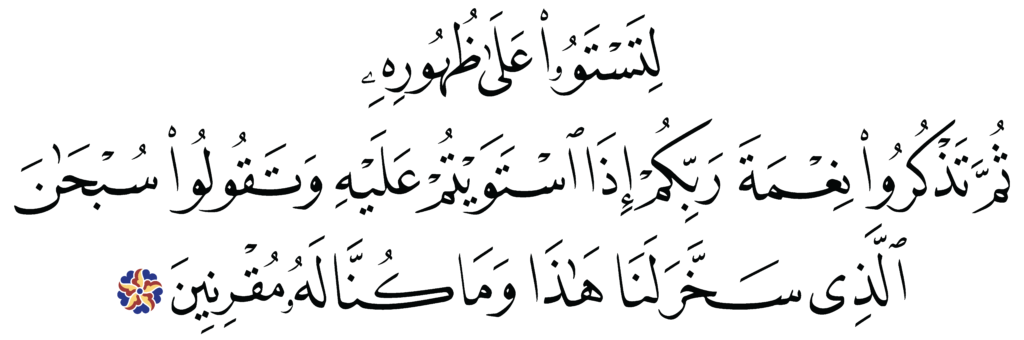 لِتَسْتَوُۥا۟ عَلَىٰ ظُهُورِهِۦ
ثُمَّ تَذْكُرُوا۟ نِعْمَةَ رَبِّكُمْ إِذَا ٱسْتَوَيْتُمْ عَلَيْهِ وَتَقُولُوا۟ سُبْحَٰنَ
ٱلَّذِى سَخَّرَ لَنَا هَٰذَا وَمَا كُنَّا لَهُۥ مُقْرِنِينَ